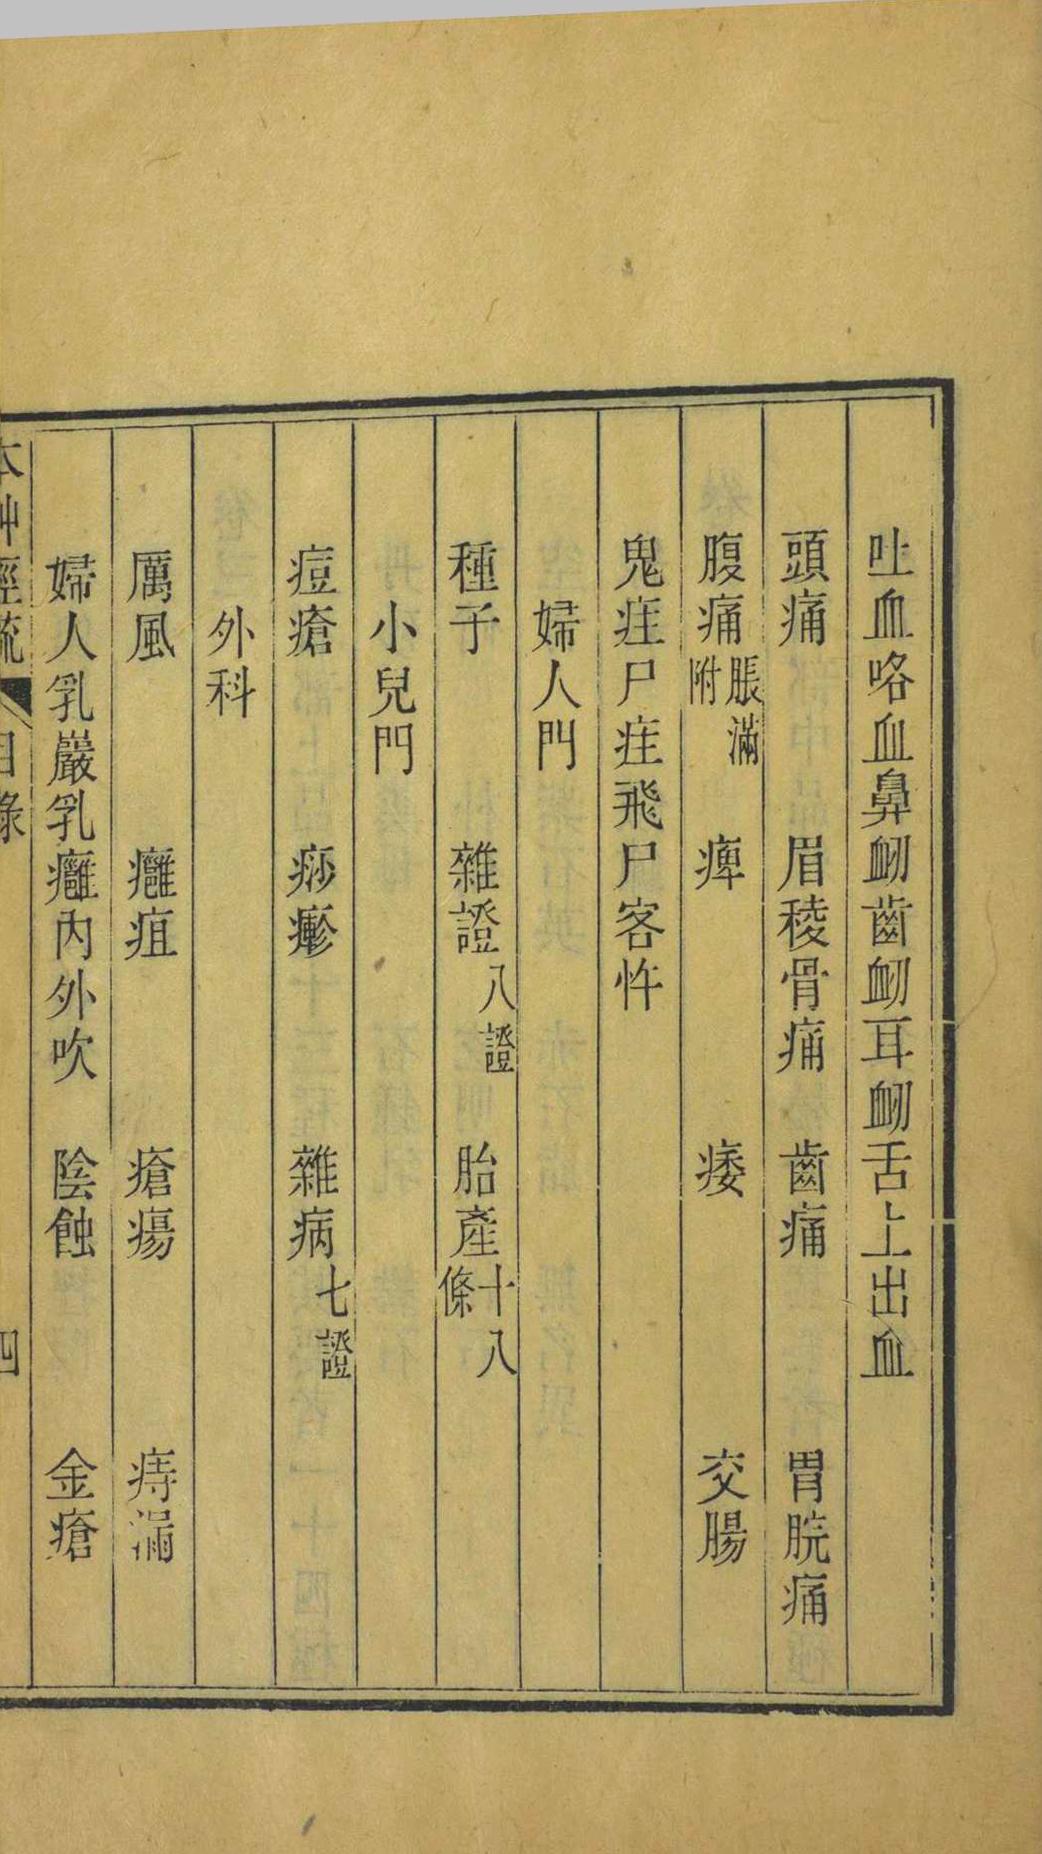 吐血咯血鼻衂齒衂耳衂舌上出血
頭痛 眉稜骨痛 齒痛 胃脘痛
腹痛脹滿附 痺 痿 交腸
鬼疰尸疰飛尸客忤
婦人門
種子 雜證八證 胎產十八條
小兒門
痘瘡 痧㾕 雜病七證
外科
厲風 癰疽 瘡瘍 痔漏
婦人乳巖乳癰內外吹 陰蝕 金瘡
本艸經疏 目錄 四